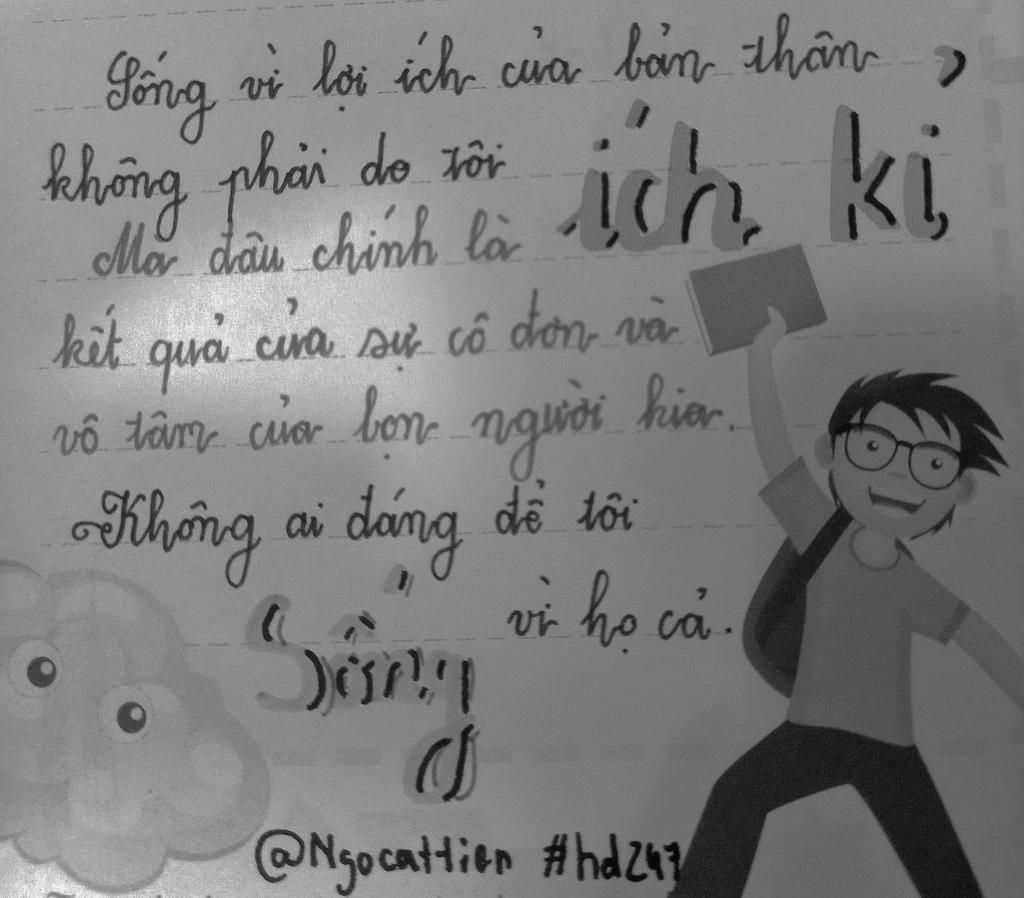 Sống vì lợi ích của bản thân,
không phải do tôi ích kỉ
Mà đâu chính là
kết quả của sự cô đơn và
vô tâm của bọn người kia.
Không ai đáng để tôi
Sống vì họ cả.
@Ngocattien #hd247